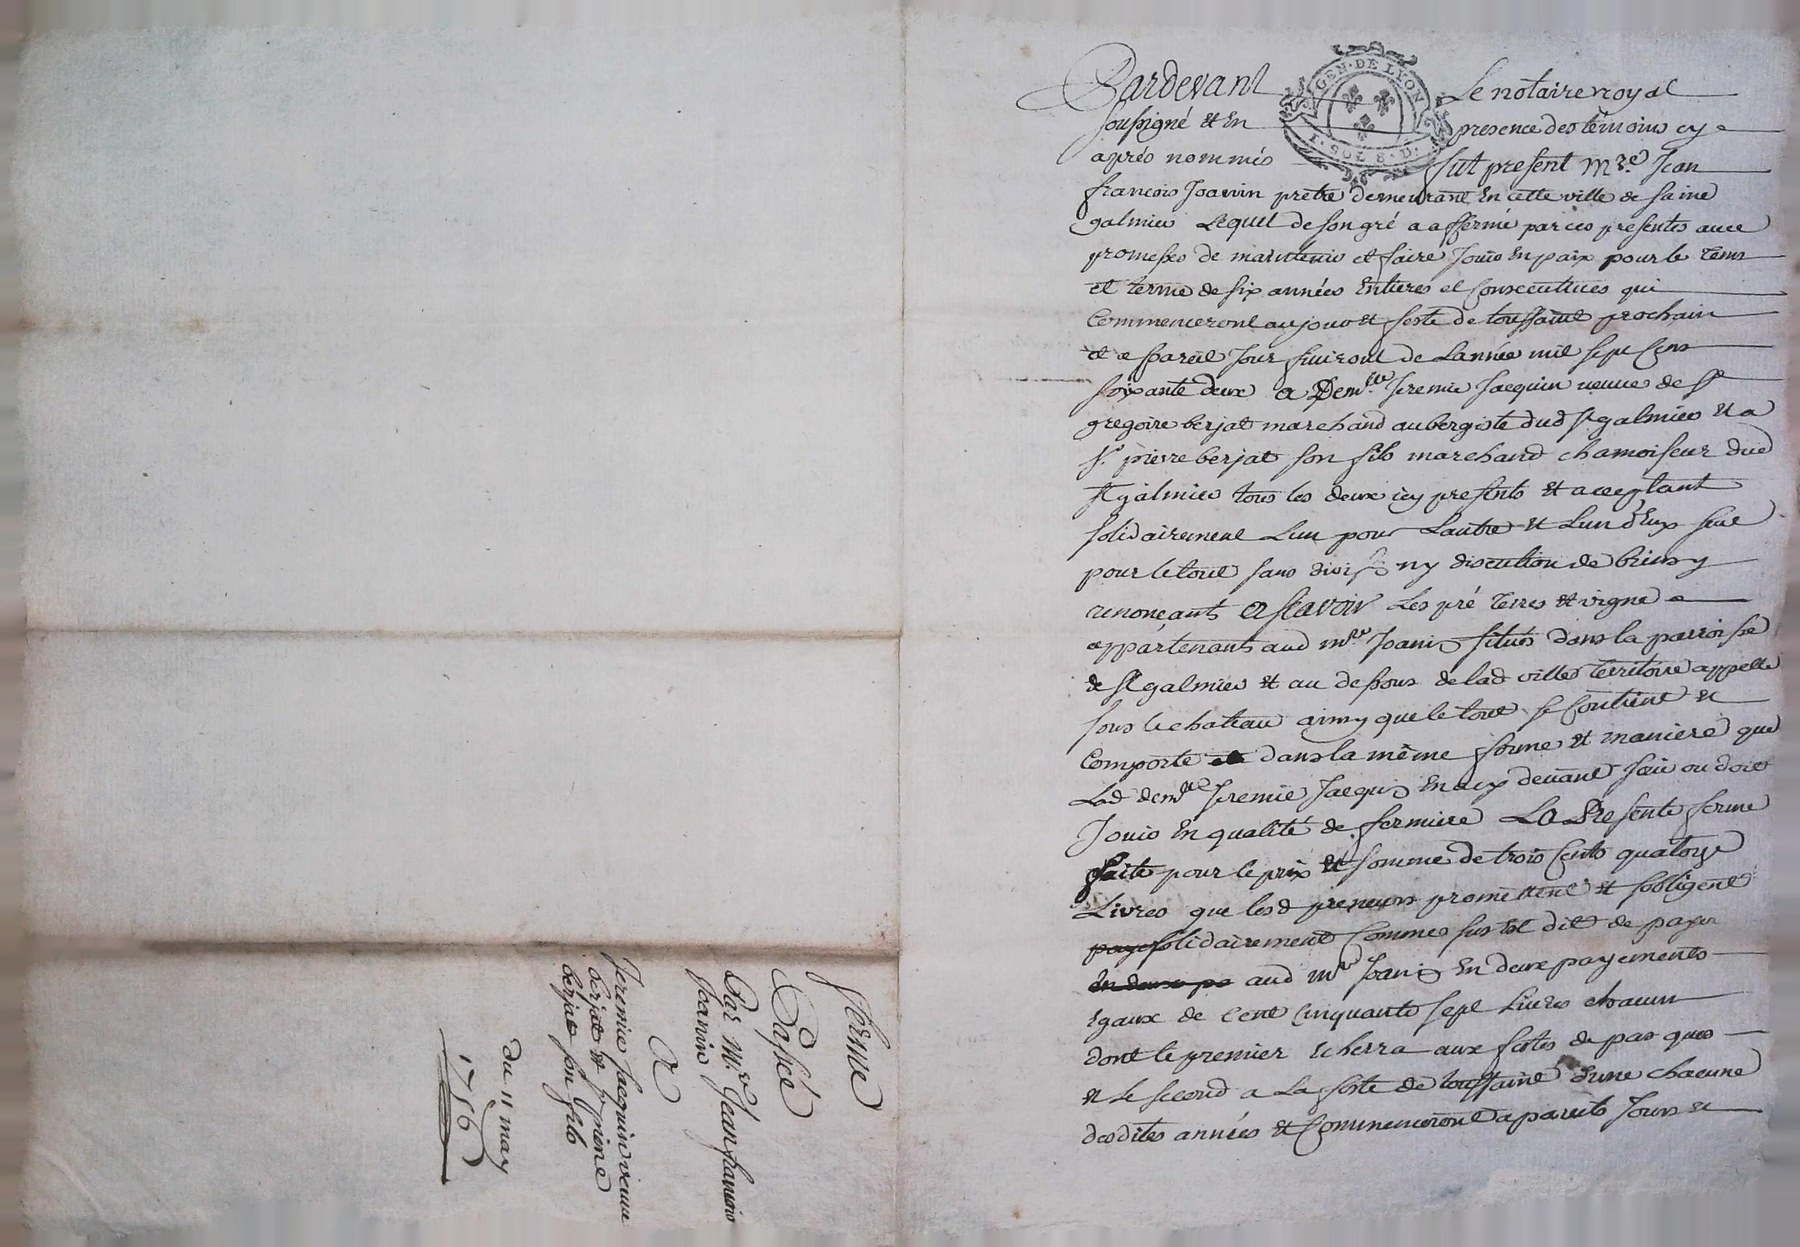 Pardevant Le notaire royal
GEN. DE LYON
1. SOL 8. D.
soussigné et En presence des temoins cy
après nommés fut present Mre. Jean
françois Joannin pretre demeurant En cette ville de saint
galmier Lequel de son gré a affermé par ces presentes avec
promesses de maintenir et faire Jouir En paix pour le tems
et terme de six années Entieres et Consecutives qui
Commenceront au jour et feste de toussaint prochain
et a pareil Jour finiront de L'année mil sept Cens
soixante deux a Demlle Jeremie Jacquin veuve de Sr
gregoire berjat marchand aubergiste dud St galmier et a
Sr. pierre berjat son fils marchand chamoiseur dud
St galmier tous les deux icy presents et acceptant
solidairement L'un pour L'autre et L'un d'Eux seul
pour le tout sans divis ny discution de biens y
renonçants a scavoir Les pré terres et vigne
appartenants aud mre Joanin situés dans la parroisse
de St galmier et au dessous de lad ville territoire appellé
sous le chateau ainsy que le tout se Contient et
Comporte dans la même forme et maniere que
Lad demlle Jeremie Jacquin En a cy devant Joüi ou deüt
Jouir En qualité de fermiere La Presente ferme
faite pour le prix et somme de trois Cents quatorze
Livres que lesd preneurs promettent et s'obligent
paye solidairement Comme sus Est dit de payer
En deux pa aud mre Joanin En deux payements
Egaux de Cent Cinquante sept Livres chacun
dont le premier Echerra aux festes de pasques
et Le second a La feste de toussaint d'une chacune
desdites années et Commenceront a pareils Jours et
ferme
Passée
Par Mre. Jean francois
Joanin
A
Jeremie Jacquin veuve
berjat et Sr pierre
berjat son fils
du 11 may
1756